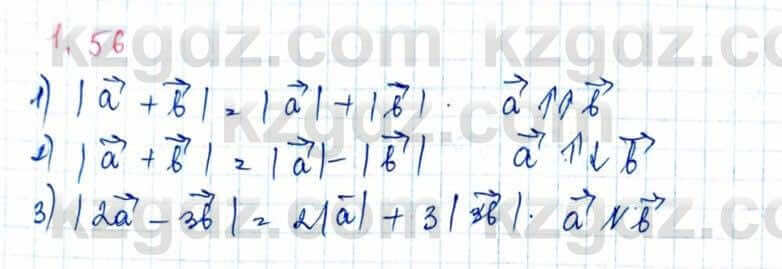 1.56
1) |a⃗ + b⃗| = |a⃗| + |b⃗|. a⃗ ↑↑ b⃗
2) |a⃗ + b⃗| = |a⃗| - |b⃗| a⃗ ↑↓ b⃗
3) |2a⃗ - 3b⃗| = 2|a⃗| + 3|3b⃗|. a⃗ ↑↓ b⃗
kzgdz.com